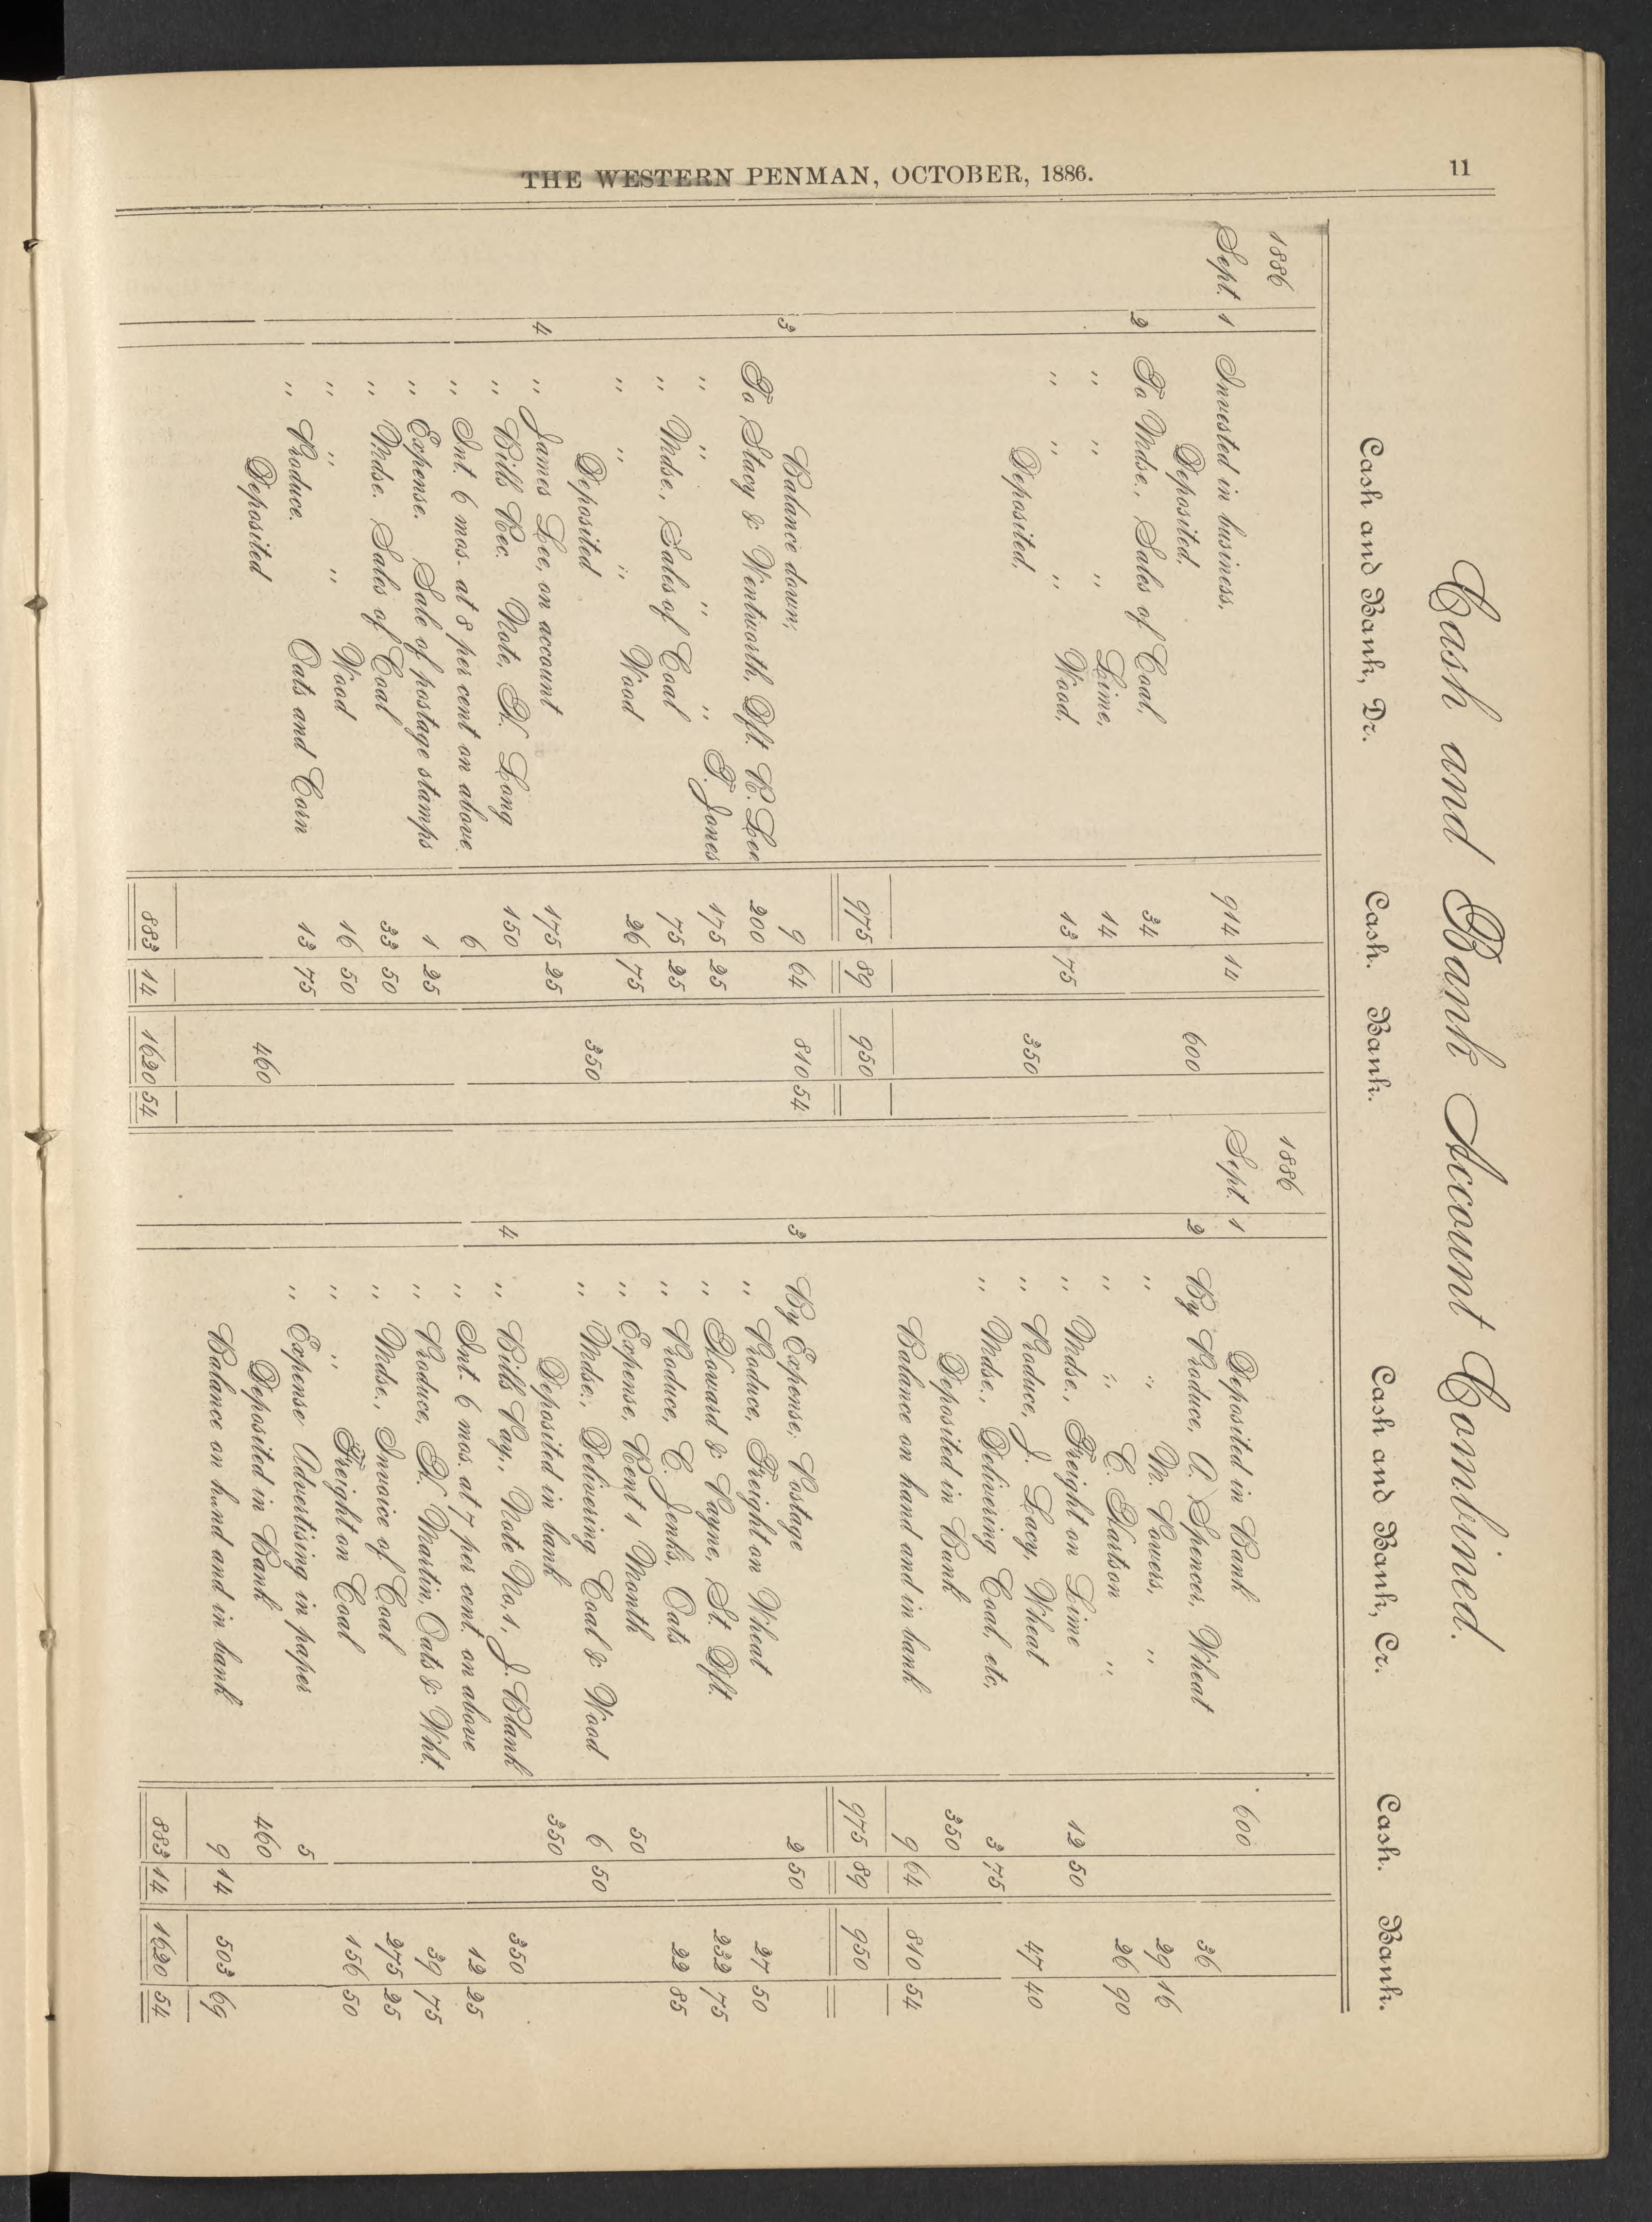 THE WESTERN PENMAN, OCTOBER, 1886. 11
Cash and Bank Account Combined.
Cash and Bank, Dr. Cash. Bank. Cash and Bank, Cr. Cash. Bank.
1886
Sept. 1 Invested in business, 914 14
Deposited, 600
2 To Mdse., Sales of Coal, 34
" " " Lime, 14
" " " Wood, 13 75
Deposited, 350
975 89 950
Balance down, 9 64 810 54
3 To Stacy & Wentworth, Dft. R. Lee 200
" " " " T. Jones 175 25
" Mdse., Sales of Coal 75 25
" " " Wood 26 75
Deposited 350
4 " James Lee, on account 175 25
" Bills Rec. Note, H. Long 150
" Int. 6 mos. at 8 per cent on above 6
" Expense. Sale of postage stamps 1 25
" Mdse. Sales of Coal 33 50
" " " Wood 16 50
" Produce. Oats and Corn 13 75
Deposited 460
883 14 1620 54
1886
Sept. 1 Deposited in Bank 600
2 By Produce, A. Spencer, Wheat 36
" " M. Powers, " 29 16
" " C. Hartson " 26 90
" Mdse., Freight on Lime 12 50
" Produce, J. Lacy, Wheat 47 40
" Mdse., Delivering Coal, etc, 3 75
Deposited in Bank 350
Balance on hand and in bank 9 64 810 54
975 89 950
3 By Expense, Postage 2 50
" Produce, Freight on Wheat 27 50
" Howard & Payne, St. Dft. 232 75
" Produce, C. Jenks, Oats 22 85
" Expense, Rent 1 Month 50
" Mdse., Delivering Coal & Wood 6 50
Deposited in bank 350
4 " Bills Pay., Note No. 1, J. Blank 350
" Int. 6 mos. at 7 per cent. on above 12 25
" Produce, H. Martin, Oats & Wht. 39 75
" Mdse., Invoice of Coal 275 25
" " Freight on Coal 156 50
" Expense Advertising in paper 5
Deposited in Bank 460
Balance on hand and in bank 9 14 503 69
883 14 1620 54